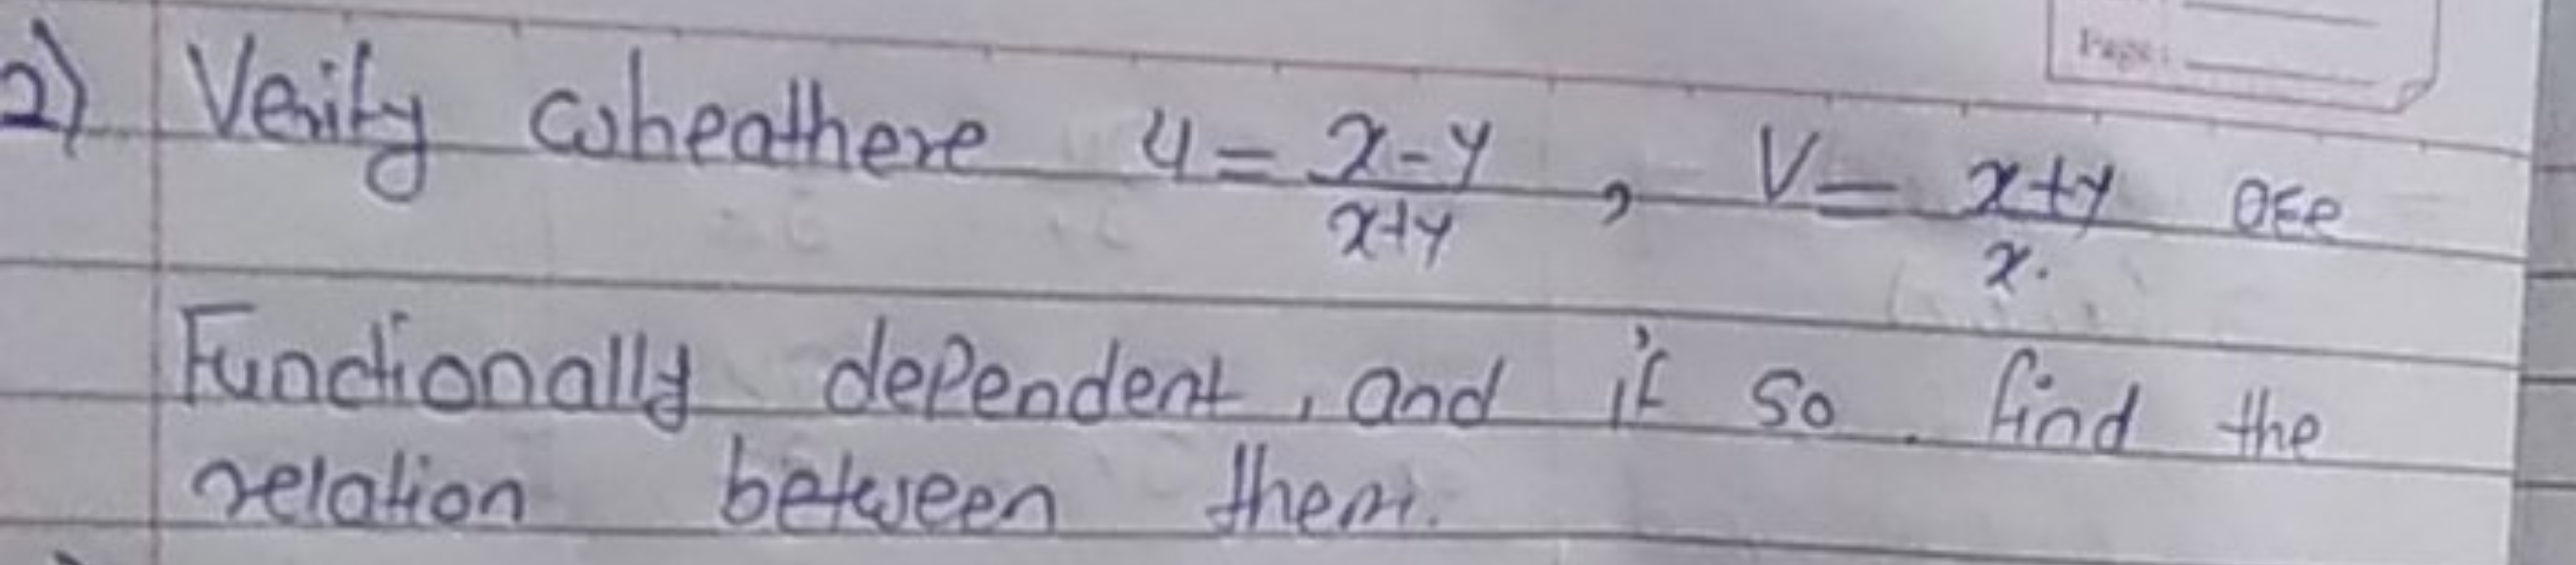 Page:
2) Verify wheathere u = x-y/x+y , V = x+y/x. are
Functionally dependent, and if so. find the
relation between them.